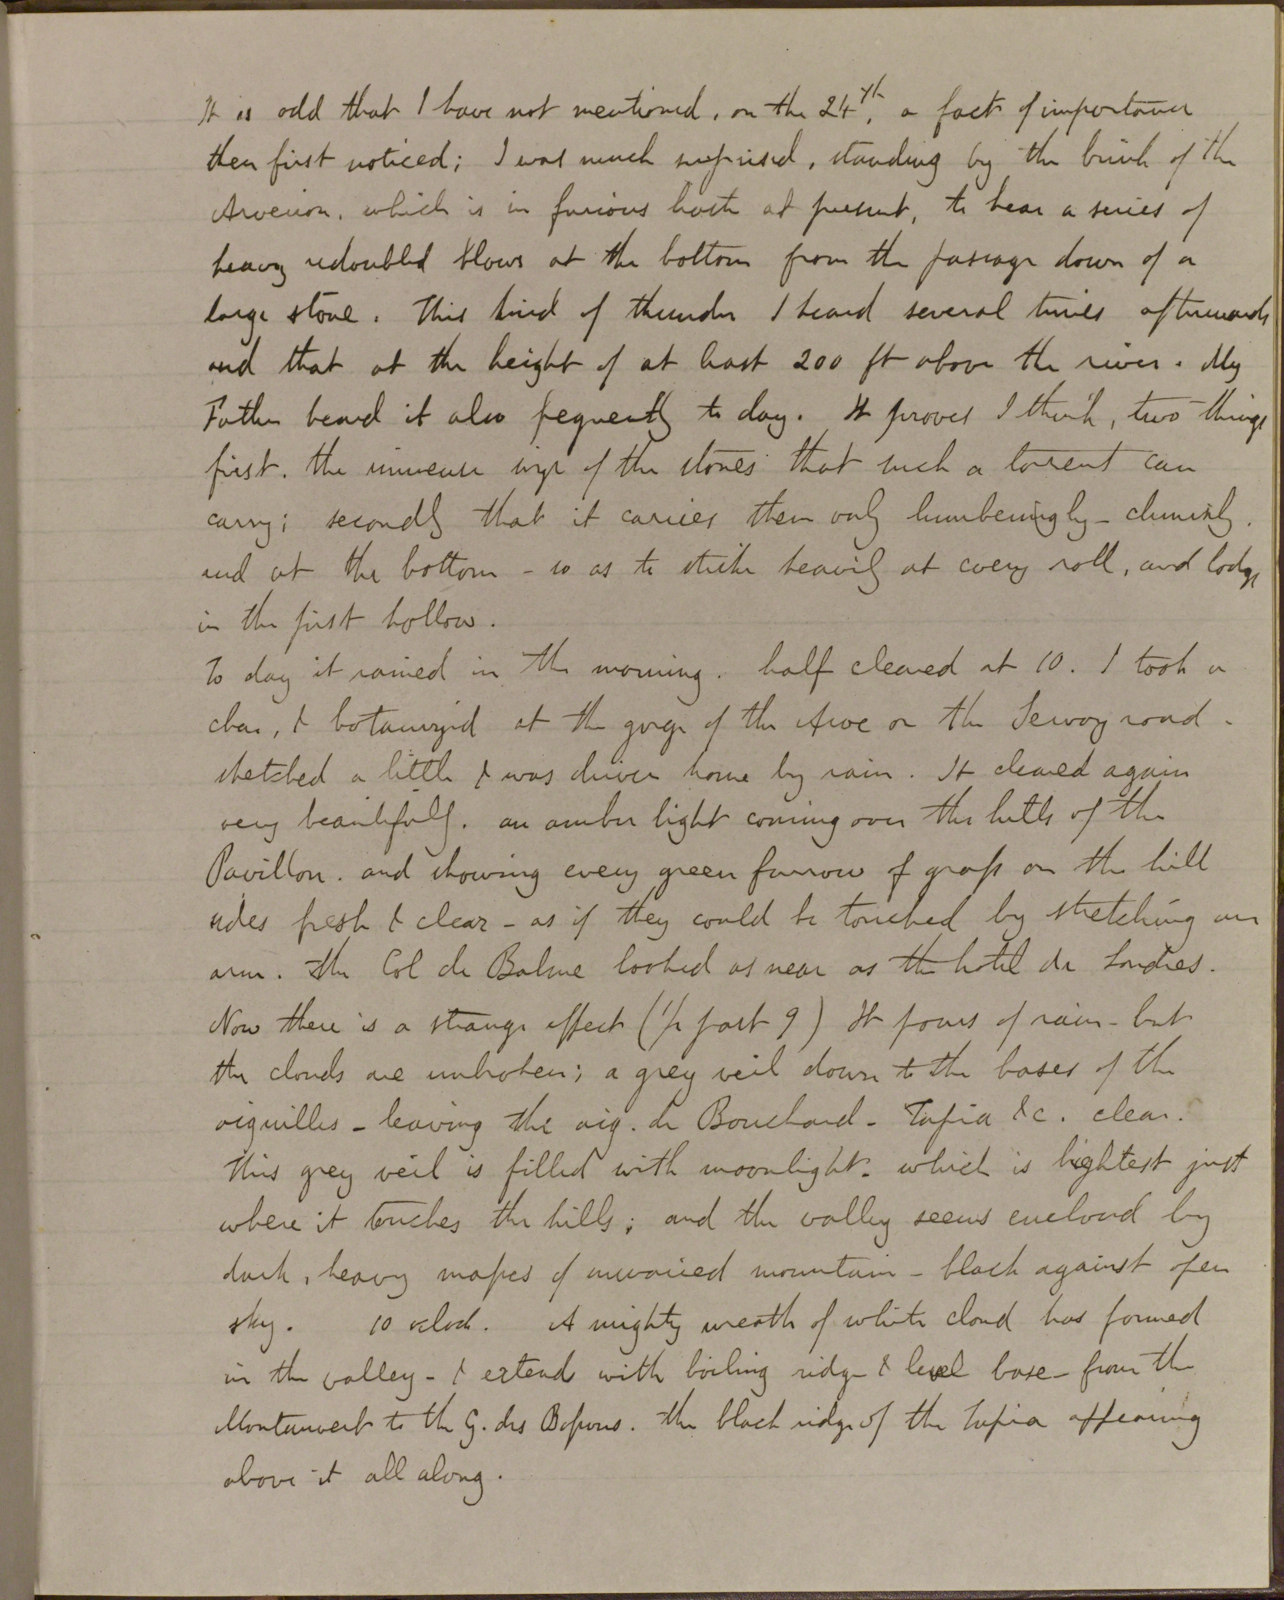 It is odd that I have not mentioned, on the 24th, a fact of importance
then first noticed; I was much surprised, standing by the brink of the
Arveiron, which is in furious haste at present, to hear a series of
heavy redoubled blows at the bottom from the passage down of a
large stone. This kind of thunder I heard several times afterwards
and that at the height of at least 200 ft above the river. My
Father heard it also frequently to day. It proves I think, two things
first. the immense size of the stones that such a torrent can
carry; secondly that it carries them only lumberingly - clumsily.
and at the bottom - so as to strike heavily at every roll, and lodge
in the first hollow.
To day it rained in the morning. half cleared at 10. I took a
char, & botanized at the gorge of the Arve on the Servoz road -
sketched a little & was driven home by rain. It cleared again
very beautifully. an amber light coming over the hills of the
Pavillon. and showing every green furrow of grass on the hill
sides fresh & clear - as if they could be touched by stretching an
arm. the Col de Balme looked as near as the hotel de Londres.
Now there is a strange effect (1/2 past 9) It pours of rain - but
the clouds are unbroken; a grey veil down to the bases of the
aiguilles - leaving the aig. de Bouchard - Tapia &c. clear.
This grey veil is filled with moonlight. which is lightest just
where it touches the hills; and the valley seems enclosed by
dark, heavy masses of unvaried mountain - black against open
sky. 10 oclock. A mighty wreath of white cloud has formed
in the valley - & extends with boiling ridge & level base - from the
Montanvert to the G. des Bossons. the black ridge of the Tapia appearing
above it all along.